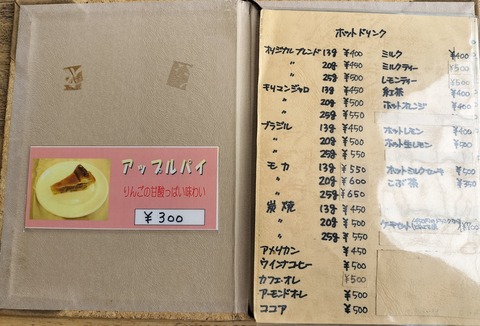 アップルパイ
りんごの甘酸っぱい味わい
¥300
ホットドリンク
オリジナルブレンド 13g ¥400
〃 20g ¥450
〃 25g ¥500
キリマンジャロ 13g ¥450
〃 20g ¥500
〃 25g ¥550
ブラジル 13g ¥450
〃 20g ¥500
〃 25g ¥550
モカ 13g ¥550
〃 20g ¥600
〃 25g ¥650
炭焼 13g ¥450
〃 20g ¥500
〃 25g ¥550
アメリカン ¥450
ウインナコーヒー ¥500
カフェ・オレ ¥500
アーモンドオレ ¥500
ココア ¥500
ミルク ¥400
ミルクティー ¥500
レモンティー ¥500
紅茶 ¥400
ホットオレンジ ¥400
ホットレモン ¥400
ホット生レモン ¥500
ホットミルクセーキ ¥550
こぶ茶 ¥350
ケーキセット ¥700